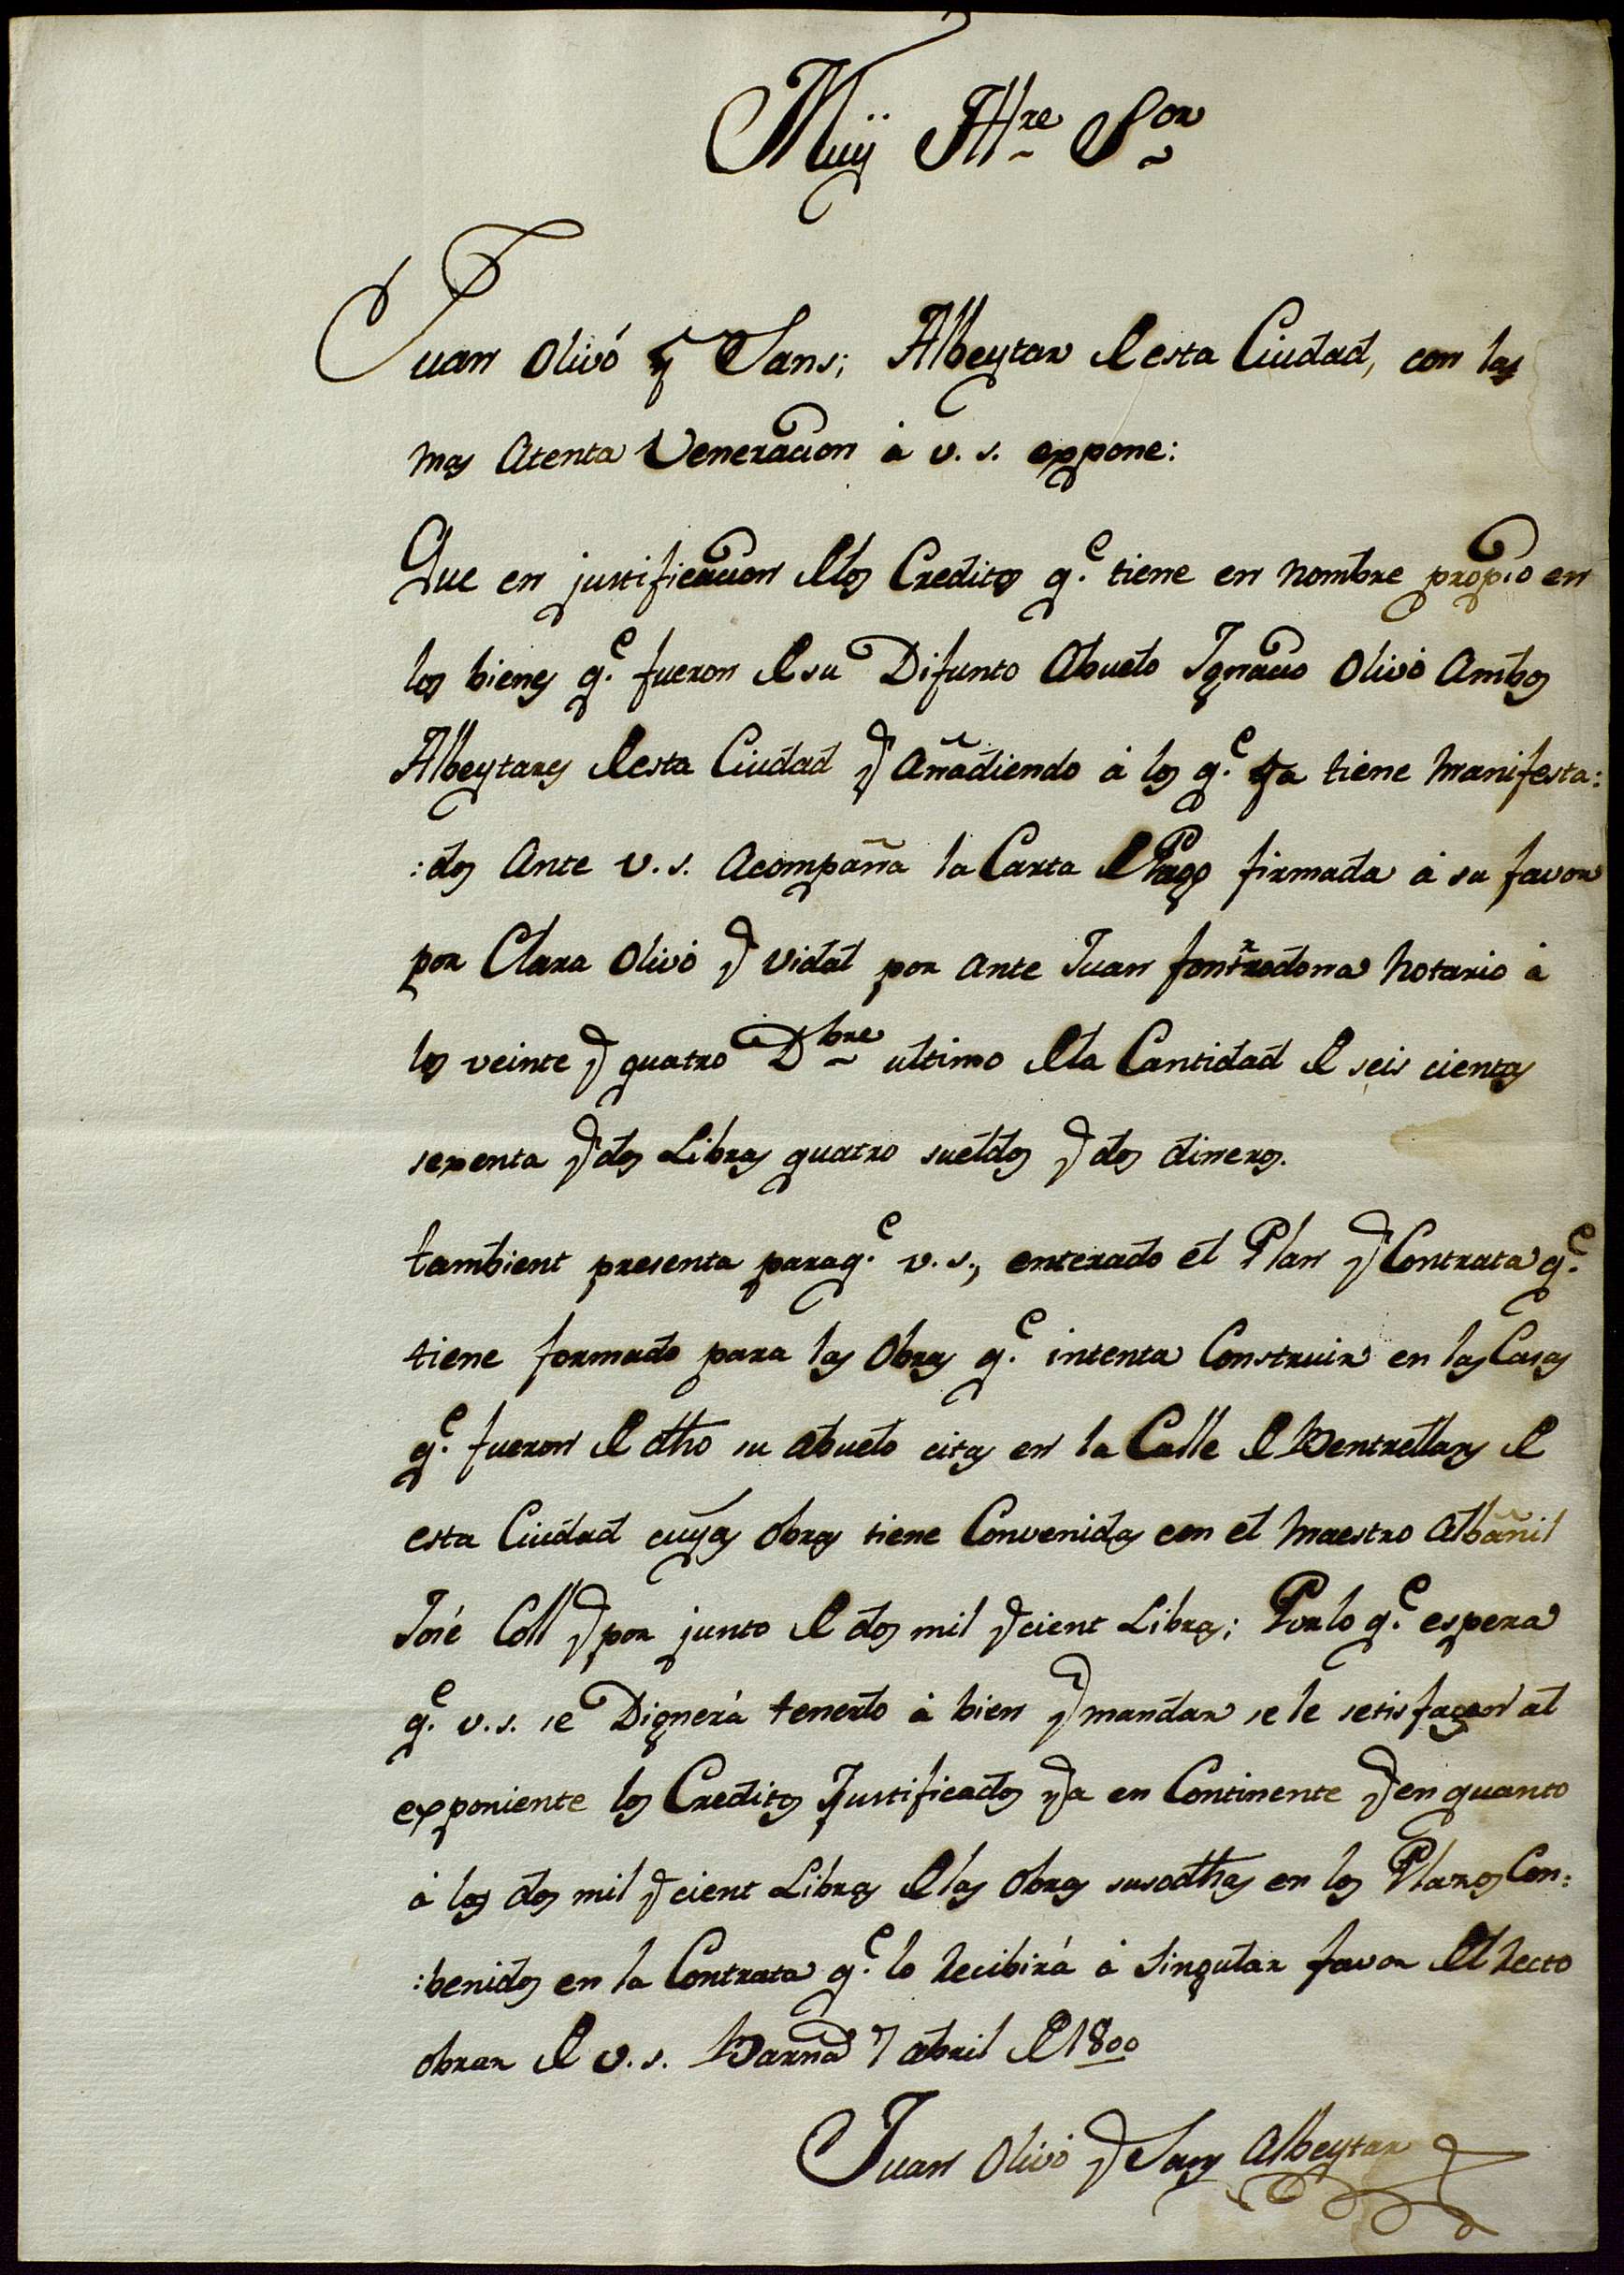 Muÿ Iltre Sor
Juan Olivó y Sans; Albeytar de esta Ciudad, con las
mas Atenta Veneracion à v. s. expone:
Que en justificacion de los Creditos q.e tiene en nombre propio en
los bienes q.e fueron de su Difunto Abuelo Ignacio Olivó Ambos
Albeytares de esta Ciudad y Añadiendo à los q.e ya tiene manifesta:
:dos Ante v. s. Acompaña la Carta de Pago firmada à su favor
por Clara Olivó y Vidal por ante Juan fontrodona Notario à
los veinte y quatro Dbre ultimo de la Cantidad de seis cientas
sexenta y dos Libras quatro sueldos y dos dineros.
tambient presenta paraq.e v. s., enterado el Plan y Contrata q.e
tiene formado para las Obras q.e intenta Construir en las Casas
q.e fueron de dho su abuelo citas en la Calle de Bentrellans de
esta Ciudad cuyas obras tiene Convenidas con el Maestro Albañil
José Coll y por junto de dos mil y cient Libras; Porlo q.e espera
q.e v. s. se Dignerá tenerlo à bien y mandar se le setisfaçen al
exponiente los Creditos Justificados ya en Continente y en quanto
à las dos mil y cient Libras de las Obras susodhas en los Planos Con:
:benidos en la Contrata q.e lo Recibirá à Singular favor del Recto
obrar de v. s. Barna 7 abril de 1800
Juan Olivó y Sans Albeytar